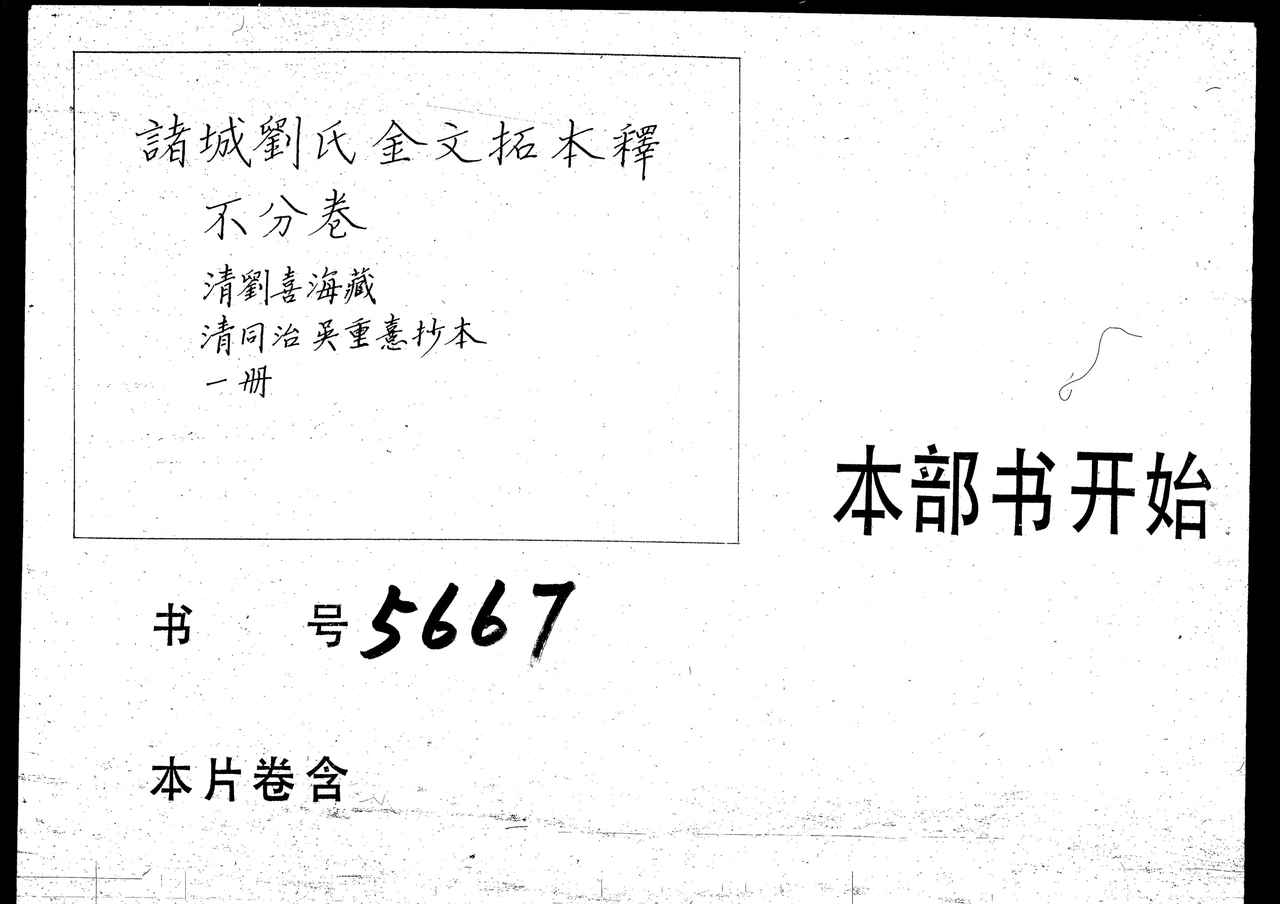 諸城劉氏金文拓本釋
不分卷
清劉喜海藏
清同治吳重憙抄本
一册
本部书开始
书 号 5667
本片卷含